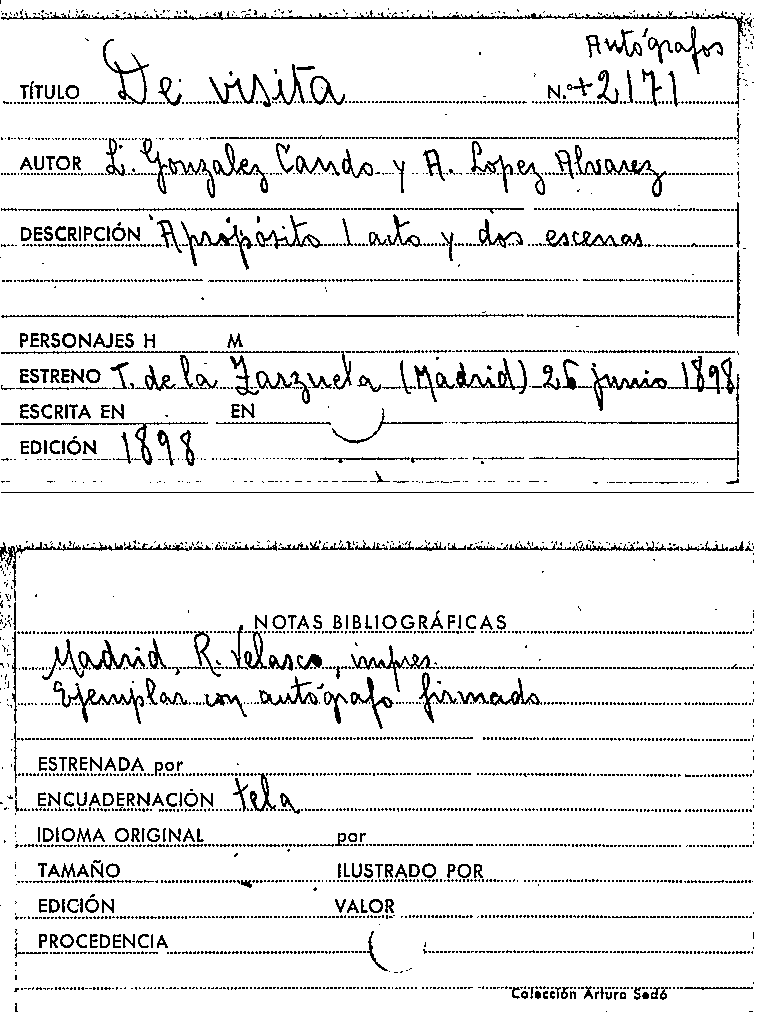 Autógrafos
TÍTULO De visita N.º + 2171
AUTOR L. Gonzalez Cando y A. Lopez Alvarez
DESCRIPCIÓN Apropósito 1 acto y dos escenas
PERSONAJES H M
ESTRENO T. de la Zarzuela (Madrid) 26 junio 1898
ESCRITA EN EN
EDICIÓN 1898
NOTAS BIBLIOGRÁFICAS
Madrid, R. Velasco, impres.
Ejemplar con autógrafo firmado
ESTRENADA por
ENCUADERNACIÓN tela
IDIOMA ORIGINAL por
TAMAÑO ILUSTRADO POR
EDICIÓN VALOR
PROCEDENCIA
Colección Arturo Sedó